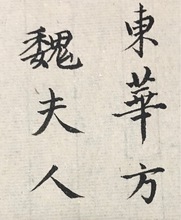 東華方
魏夫人